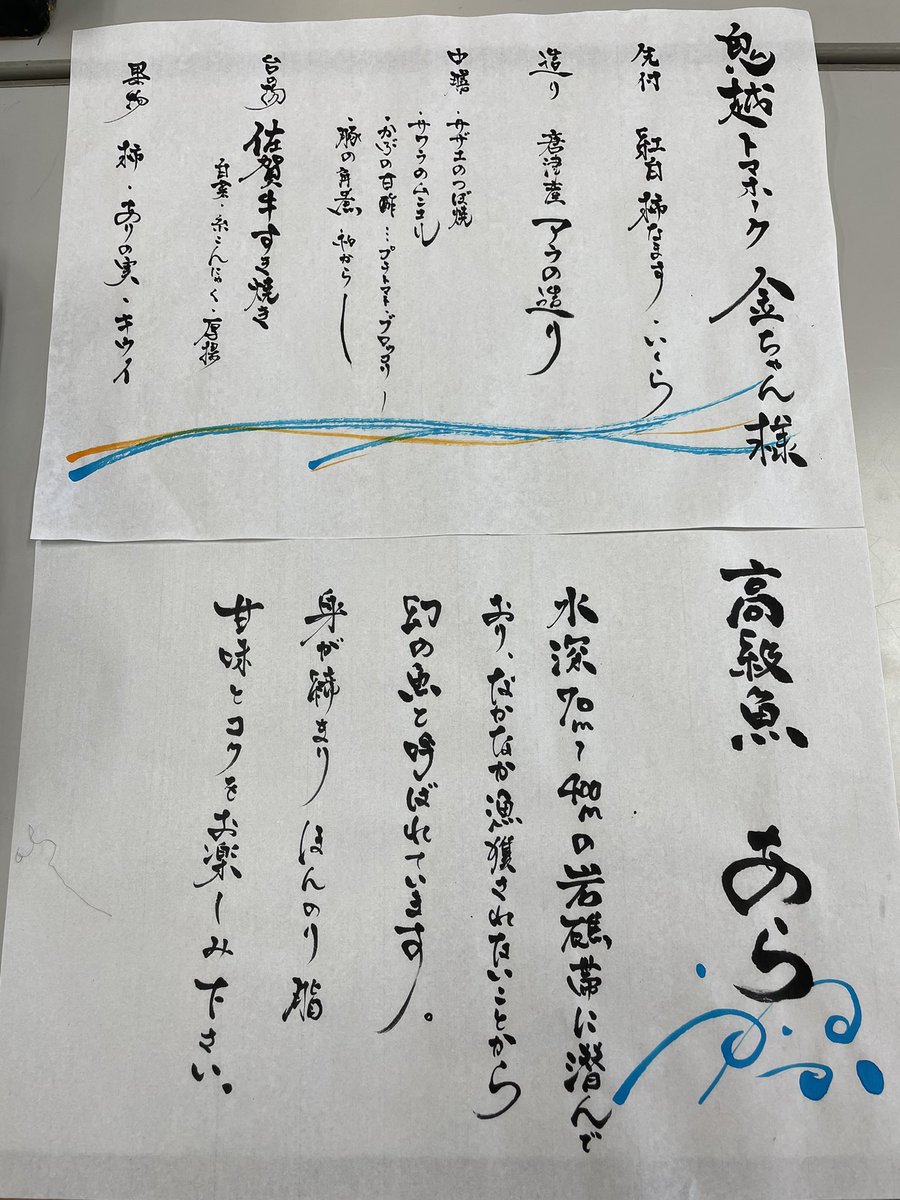 鬼越トマホーク 金ちゃん様
先付 紅白柿なます・いくら
造り 唐津産 アラの造り
・サザエのつぼ焼
・サワラのムニエル
・かぶの甘酢…プチトマト・ブロッコリー
・豚の角煮 和からし
台の物 佐賀牛すき焼き
白菜・糸こんにゃく・厚揚
果物 柿・ありの実・キウイ
高級魚 あら
水深70m～400mの岩礁帯に潜んで
おり、なかなか漁獲されないことから
幻の魚と呼ばれています。
身が締まり ほんのり脂
甘味とコクをお楽しみ下さい、